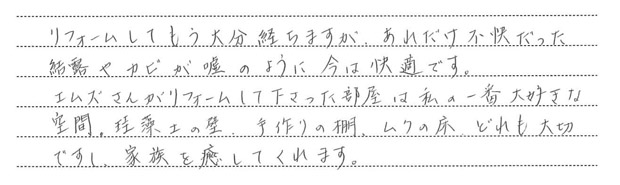 リフォームしてもう大分経ちますが、あれだけ不快だった
結露やカビが嘘のように今は快適です。
エムズさんがリフォームして下さった部屋は私の一番大好きな
空間。珪藻土の壁、手作りの棚、ムクの床、どれも大切
ですし、家族を癒してくれます。